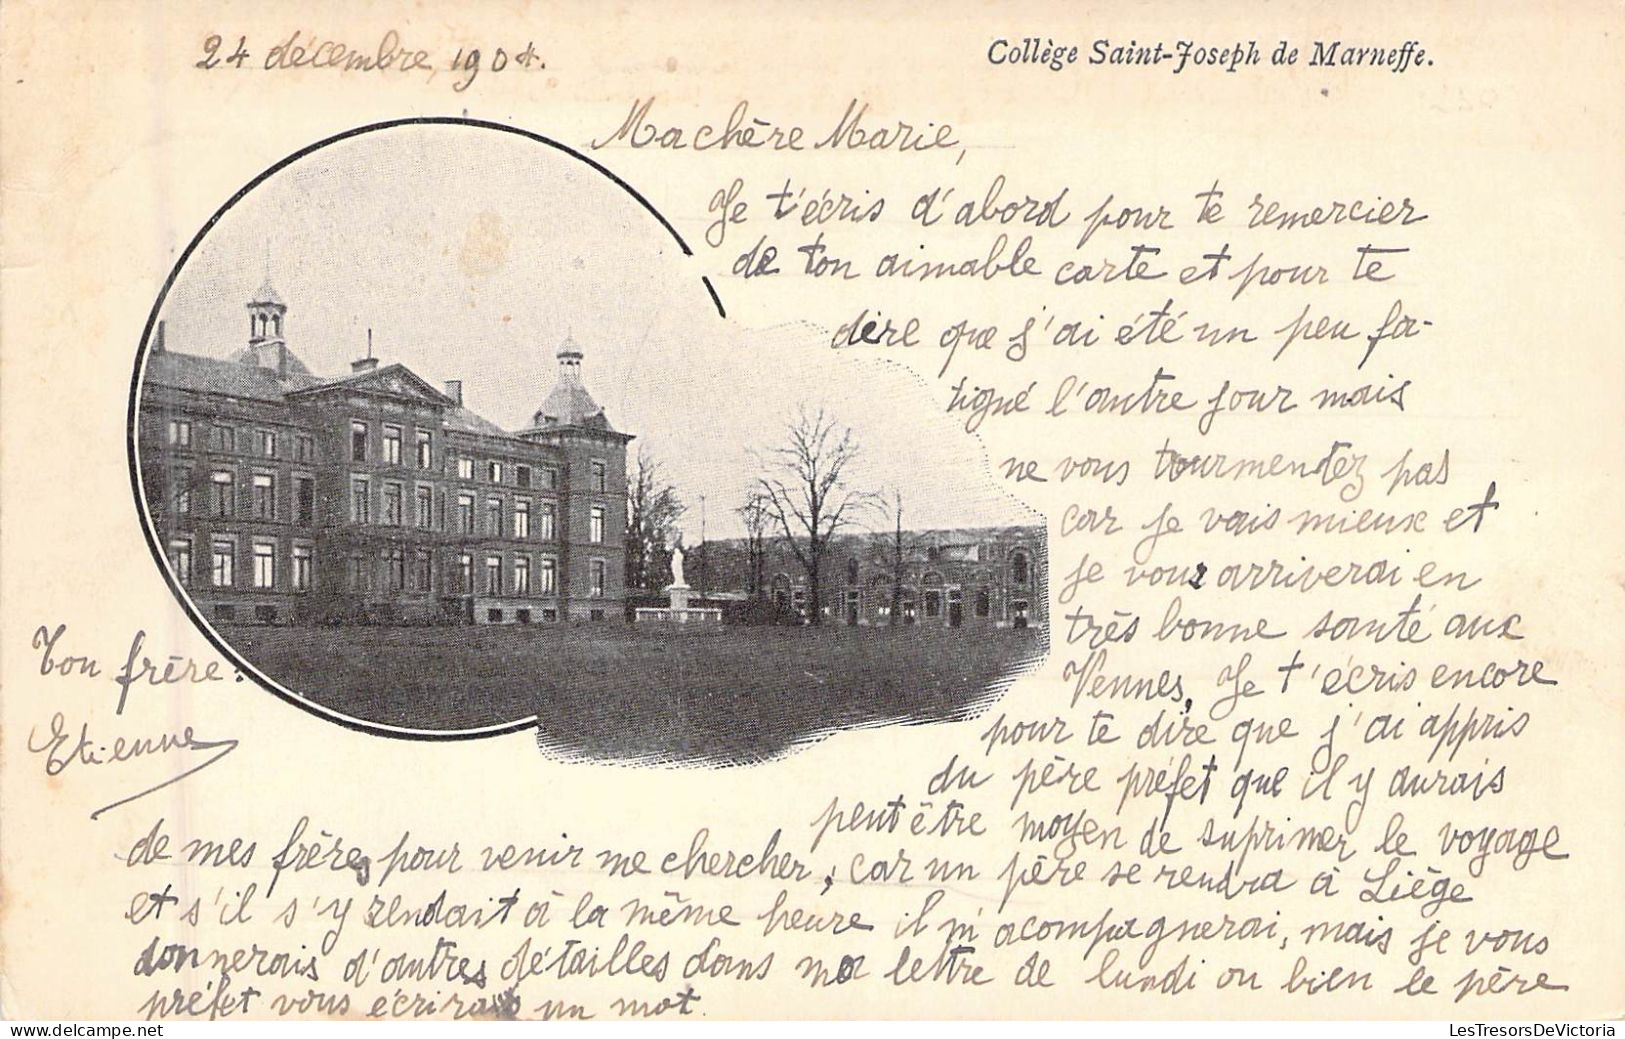 24 décembre, 1904.
Collège Saint-Joseph de Marneffe.
Ma chère Marie,
Je t'écris d'abord pour te remercier
de ton aimable carte et pour te
dire que j'ai été un peu fa-
tigné l'autre jour mais
ne vous tourmentez pas
car je vais mieux et
je vous arriverai en
très bonne santé aux
Vennes, Je t'écris encore
pour te dire que j'ai appris
du père préfet que il y aurais
peut être moyen de suprimer le voyage
de mes frères pour venir me chercher, car un père se rendra à Liège
et s'il s'y rendait à la même heure il m'acompagnerai, mais je vous
donnerais d'autres détailles dans ma lettre de lundi ou bien le père
préfet vous écrirais un mot.
Ton frère:
Etienne
LesTresorsDeVictoria